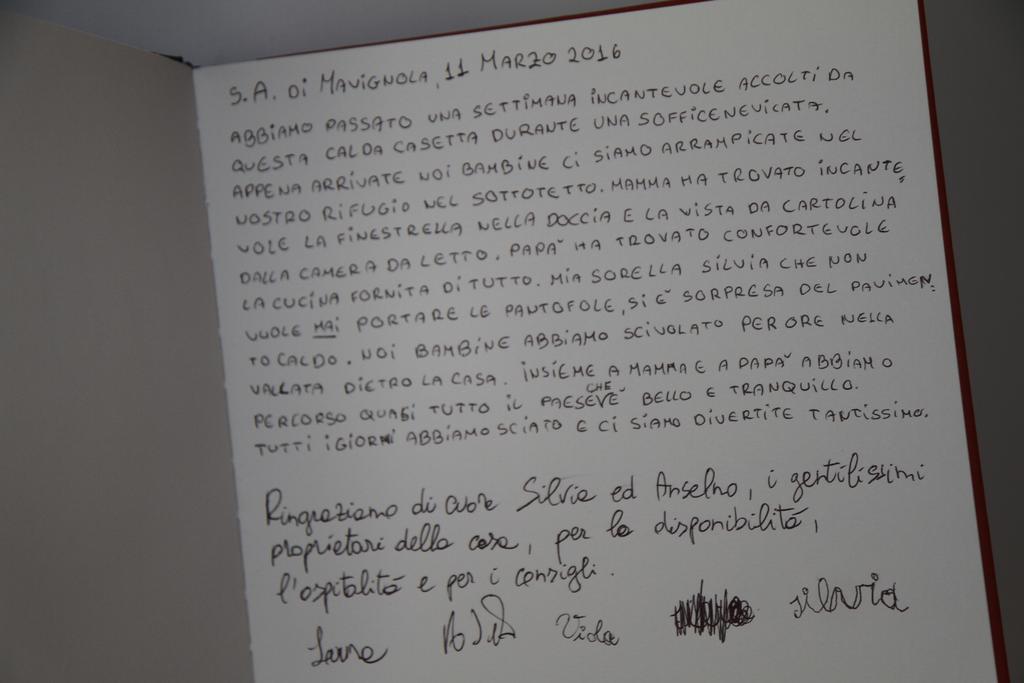 S.A. Di MAVIGNOLA, 11 MARZO 2016
ABBIAMO PASSATO UNA SETTIMANA INCANTEVOLE ACCOLTI DA
QUESTA CALDA CASETTA DURANTE UNA SOFFICE NEVICATA.
APPENA ARRIVATE NOI BAMBINE CI SIAMO ARRAMPICATE NEL
NOSTRO RIFUGIO NEL SOTTOTETTO. MAMMA HA TROVATO INCANTE=
VOLE LA FINESTRELLA NELLA DOCCIA E LA VISTA DA CARTOLINA
DALLA CAMERA DA LETTO. PAPA' HA TROVATO CONFORTEVOLE
LA CUCINA FORNITA DI TUTTO. MIA SORELLA SILVIA CHE NON
VUOLE MAI PORTARE LE PANTOFOLE, SI E' SORPRESA DEL PAVIMEN=
TO CALDO. NOI BAMBINE ABBIAMO SCIVOLATO PER ORE NELLA
VALLATA DIETRO LA CASA. INSIEME A MAMMA E A PAPA' ABBIAMO
PERCORSO QUASI TUTTO IL PAESE CHE E' BELLO E TRANQUILLO.
TUTTI I GIORNI ABBIAMO SCIATO E CI SIAMO DIVERTITE TANTISSIMO.
Ringraziamo di cuore Silvia ed Anselmo, i gentilissimi
proprietari della casa, per la disponibilità,
l'ospitalità e per i consigli.
Viola silvia